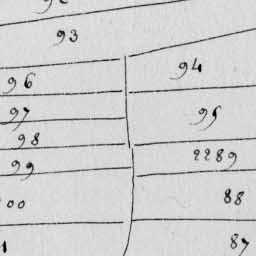 93
94
96
95
97
98
2289
99
88
00
87